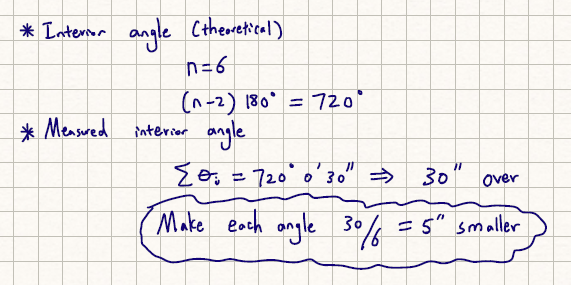 * Interior angle (theoretical)
n=6
(n-2) 180° = 720°
* Measured interior angle
∑ θᵢ = 720° 0' 30" ⇒ 30" over
Make each angle 30/6 = 5" smaller